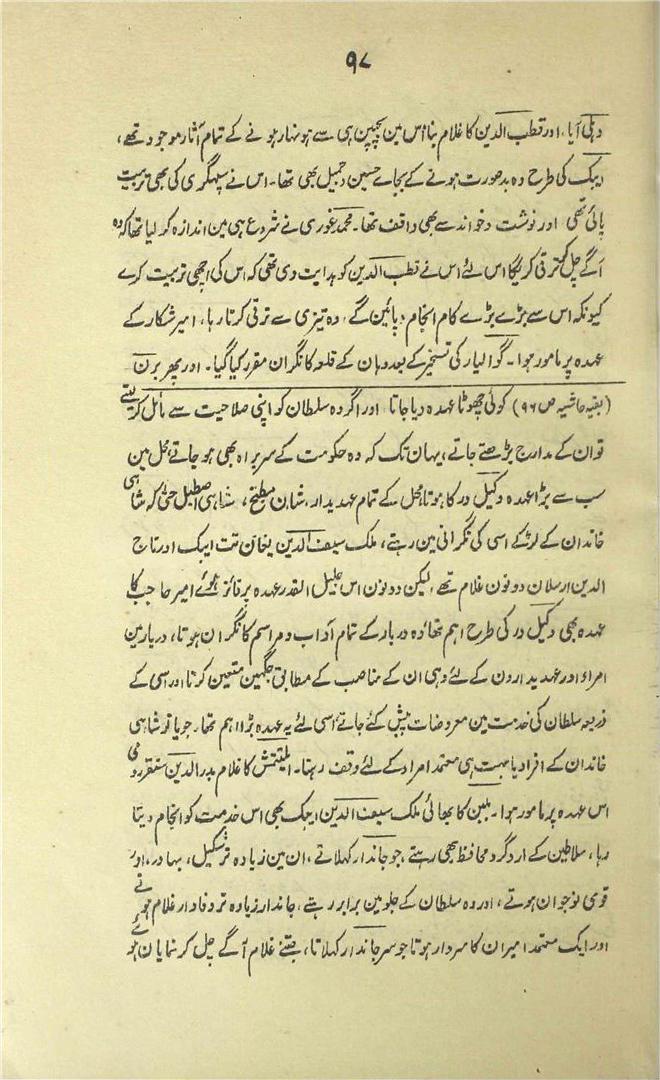 ۹۷
دہلی آیا، اور قطب الدین کا غلام بنا اس مین بچپن ہی سے ہونہار ہونے کے تمام آثار موجود تھے،
ایبک کی طرح وہ بدصورت ہونے کے بجاے حسین وجمیل بھی تھا۔ اس نے سپہگری کی بھی تربیت
پائی تھی اور نوشت وخواند سے بھی واقف تھا۔ محمد غوری نے شروع ہی مین اندازہ کر لیا تھا کہ وہ
آگے چل کر ترقی کریگا اس لئے اس نے قطب الدین کو ہدایت دی تھی کہ اس کی اچھی تربیت کرے
کیونکہ اس سے بڑے بڑے کام انجام پائین گے، وہ تیزی سے ترقی کرتا رہا، امیر شکار کے
عہدہ پر مامور ہوا۔ گوالیار کی تسخیر کے بعد وہان کے قلعہ کا نگران مقرر کیا گیا۔ اور پھر برن
(بقیہ حاشیہ ص ۹۶) کوئی چھوٹا عہدہ دیا جاتا اور اگر وہ سلطان کو اپنی صلاحیت سے مائل کر لیتے
تو ان کے مدارج بڑھتے جاتے، یہان تک کہ وہ حکومت کے سربراہ بھی ہو جاتے، محل مین
سب سے بڑا عہدہ وکیل در کا ہوتا، محل کے تمام عہدیدار، شاہی مطبخ، شاہی اصطبل حتی کہ شاہی
خاندان کے لڑکے اسی کی نگرانی مین رہتے، ملک سیف الدین یغان تت ایبک اور تاج
الدین ارسلان دونون غلام تھے، لیکن دونون اس جلیل القدر عہدہ پر فائز ہوئے امیر حاجب کا
عہدہ بھی وکیل در کی طرح اہم تھا، وہ دربار کے تمام آداب و مراسم کا نگران ہوتا، دربار مین
امراء اور عہدیدارون کے لئے وہی ان کے مناصب کے مطابق جگہین متعین کرتا اور اسی کے
ذریعہ سلطان کی خدمت مین معروضات پیش کئے جاتے اسی لئے یہ عہدہ بڑا اہم تھا۔ جو یا تو شاہی
خاندان کے افراد یا بہت ہی معتمد امراء کے لئے وقف رہتا۔ ایلتتمش کا غلام بدر الدین سنقر رومی
اس عہدہ پر مامور ہوا۔ بلبن کا بھائی ملک سیف الدین ایبک بھی اس خدمت کو انجام دیتا
رہا، سلاطین کے ارد گرد محافظ بھی رہتے، جو جاندار کہلاتے، ان مین زیادہ تر شکیل، بہادر، اور
قوی نوجوان ہوتے، اور وہ سلطان کے جلو مین برابر رہتے، جاندار زیادہ تر وفادار غلام ہوتے
اور ایک معتمد امیر ان کا سردار ہوتا جو سرجاندار کہلاتا، جتنے غلام آگے چل کر نمایان ہوئے